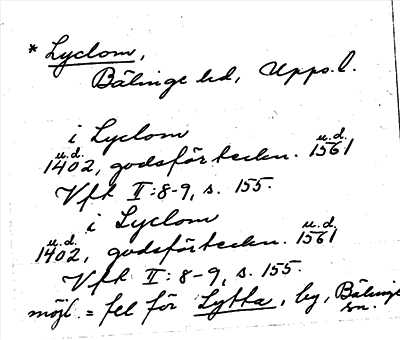 * Lyclom,
Bälinge hd, Upps. l.
i Lyclom
u.d.
1402, godsförteckn. 1561
u.d.
Vft II:8-9, s. 155.
i Lyclom
u.d.
1402, godsförteckn. 1561
u.d.
Vft II:8-9, s. 155.
möjl. = fel för Lytta, by, Bälinge
sn.